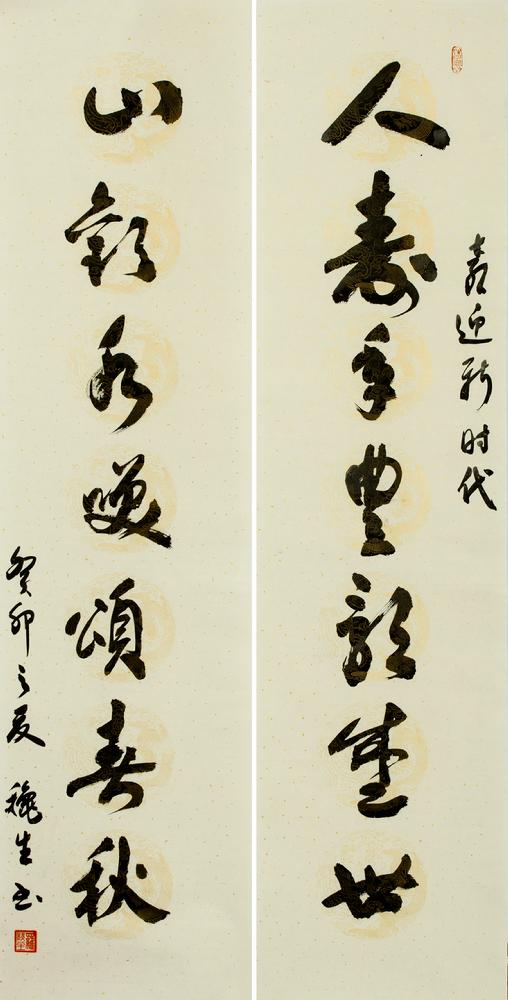 喜迎新时代
人寿年豊歌盛世
山歡水笑頌春秋
癸卯之夏 穐生书